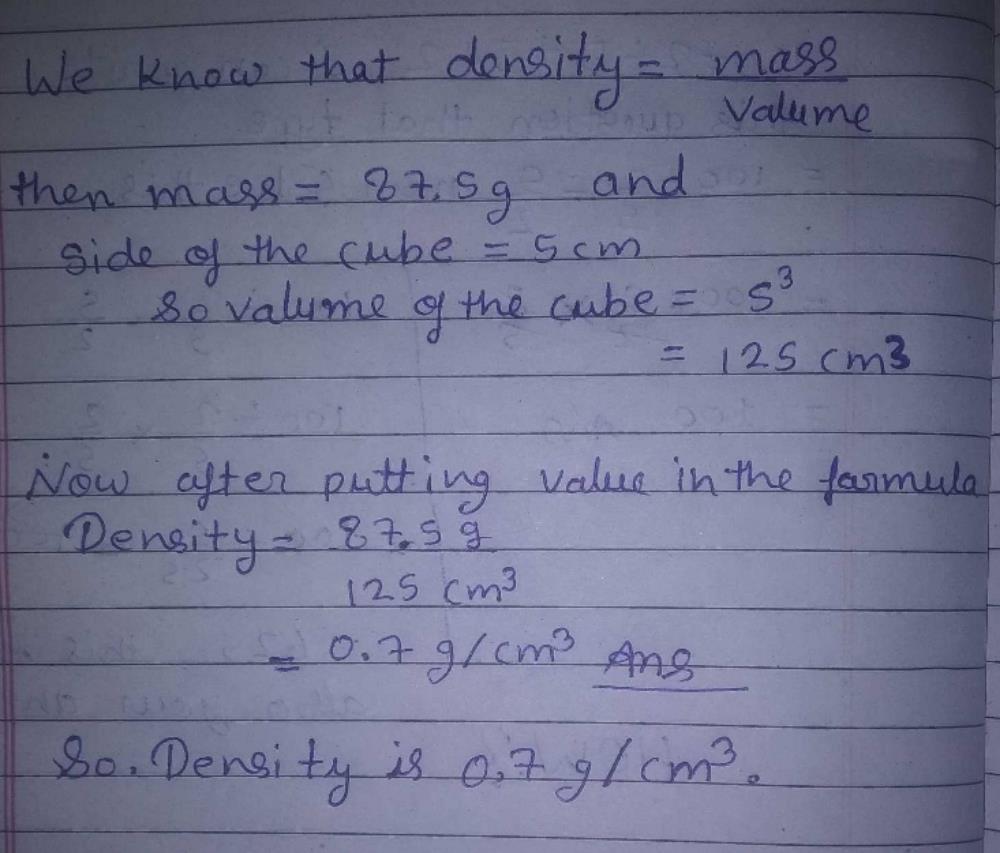 We know that density = mass
Valume
then mass = 87.5g and
side of the cube = 5 cm
so valume of the cube = 5³
= 125 cm3
Now after putting value in the farmula
Density = 87.5 g
125 cm³
= 0.7 g/cm³ Ans
So. Density is 0.7 g/cm³.